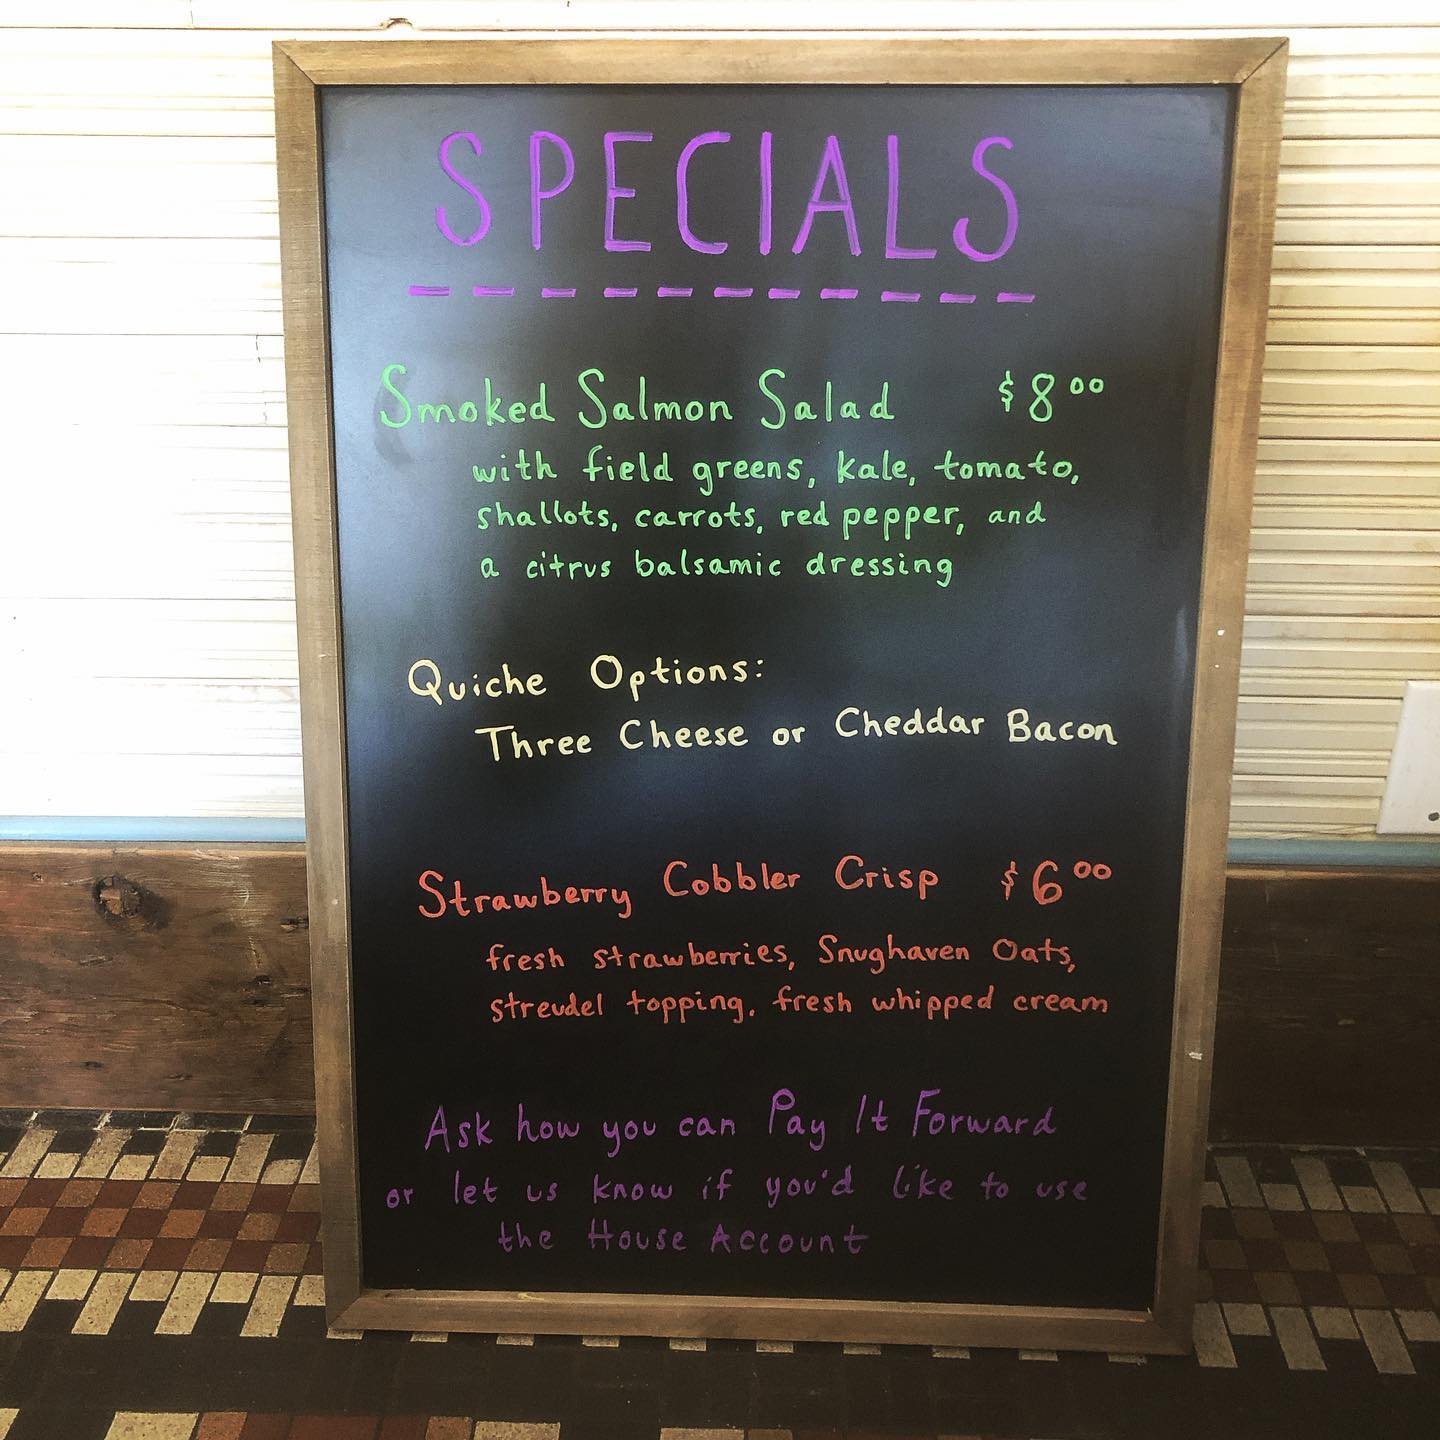 SPECIALS
Smoked Salmon Salad $8.00
with field greens, kale, tomato,
shallots, carrots, red pepper, and
a citrus balsamic dressing
Quiche Options:
Three Cheese or Cheddar Bacon
Strawberry Cobbler Crisp $6.00
fresh strawberries, Snughaven Oats,
streudel topping, fresh whipped cream
Ask how you can Pay It Forward
or let us know if you'd like to use
the House Account